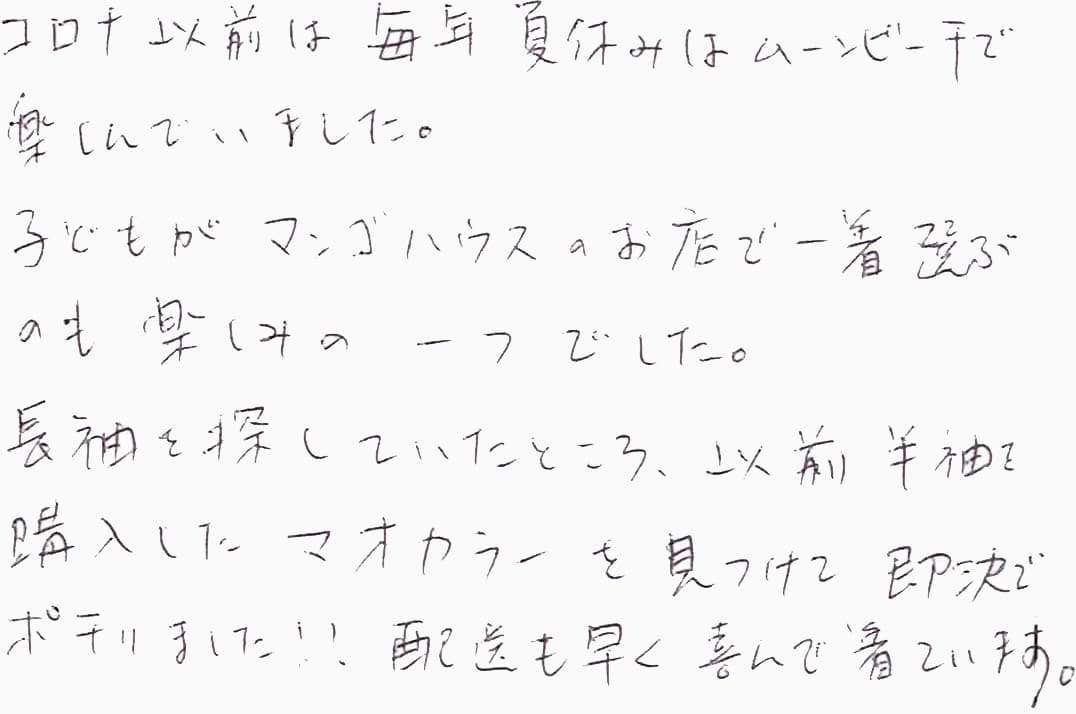 コロナ以前は毎年夏休みはムーンビーチで
楽しんでいました。
子どもがマンゴハウスのお店で一着選ぶ
のも楽しみの一つでした。
長袖を探していたところ、以前半袖を
購入したマオカラーを見つけて即決で
ポチリました!! 配送も早く喜んで着ています。